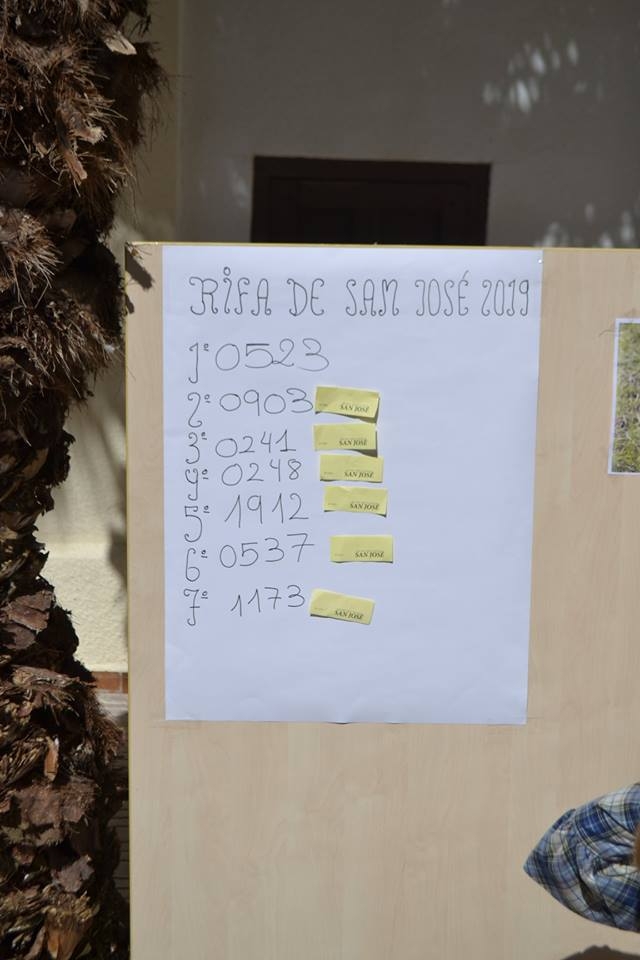 RIFA DE SAN JOSÉ 2019
1º 0523
2º 0903 SAN JOSÉ
3º 0241 SAN JOSÉ
4º 0248 SAN JOSÉ
5º 1912 SAN JOSÉ
6º 0537 SAN JOSÉ
7º 1173 SAN JOSÉ